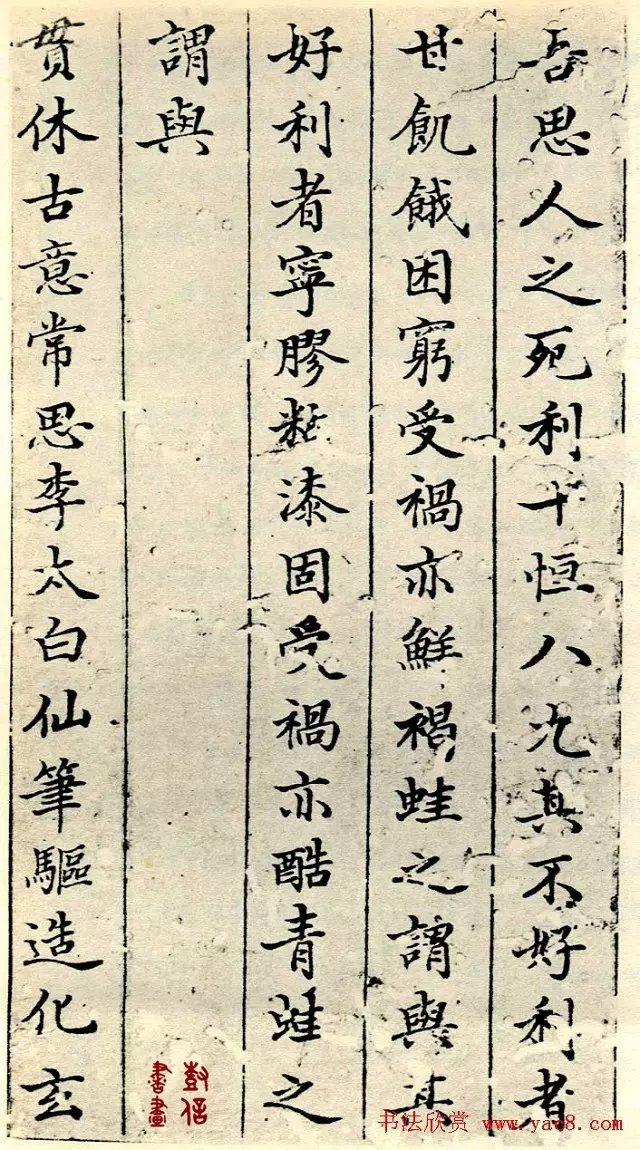 吾思人之死利十恒八九其不好利者
甘飢餓困窮受禍亦鮮褐蛙之謂與其
好利者寧膠粘漆固受禍亦酷青蛙之
謂與
貫休古意常思李太白仙筆驅造化玄
書法欣赏 www.yac8.com